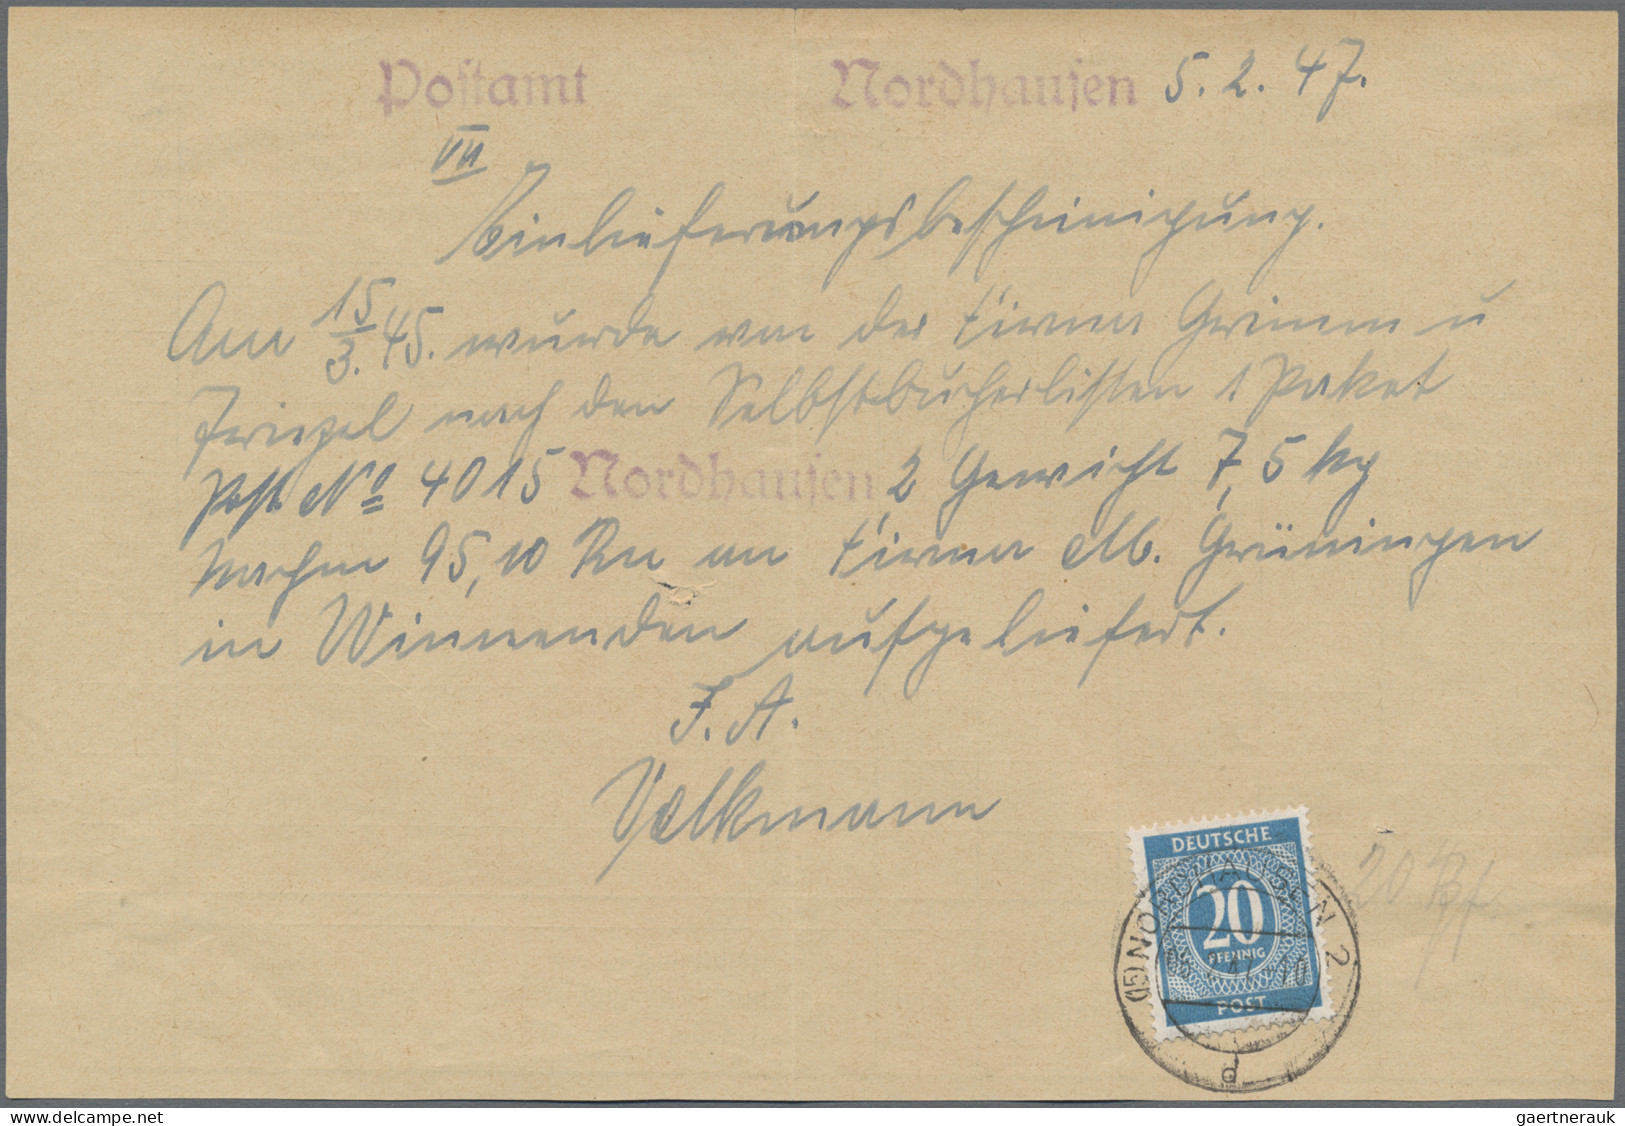 Postamt Nordhausen 5.2.47.
VII
Einlieferungsbescheinigung.
Am 15/3.45. wurde von der Firma Grimm u
Triegel nach den Selbstbucherlisten 1 Paket
Post No 4015 Nordhausen 2 Gewicht 7,5 kg
Nachn 95,10 Rm an Firma M. Grüningen
in Winnenden aufgeliefert.
J. A.
Volkmann
DEUTSCHE
20
PFENNIG
POST
(15) NORDHAUSEN 2
a
20 Pf.
gaertnerauk | delcampe.net